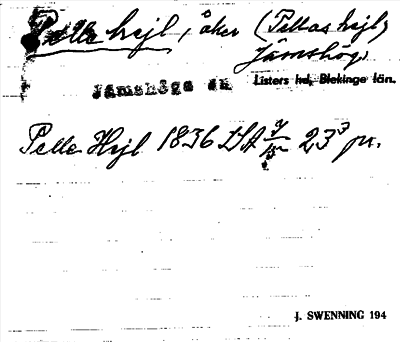 Pelle hejl, åker (Pellas hejl)
Jämshög,
Jämshögs sn Listers hd, Blekinge län.
Pelle Hejl 1836 LSA 23³ pr.
J. SWENNING 194